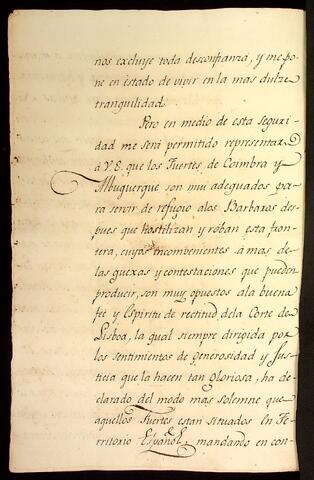 nos excluye toda desconfianza, y me po-
ne en estado de vivir en la mas dulze
tranquilidad.
Pero en medio de esta seguri-
dad me será permitido representar
á V.E. que los Fuertes de Coimbra y
Albuquerque son mui adequados pa-
ra servir de refugio alos Barbaros des-
pues que hostilizan y roban esta fron-
tera, cuyos incombenientes á mas de-
las quexas y contestaciones que pueden
producir, son muy opuestos ala buena
feé y Espiritu de rectitud dela Corte de
Lisboa, la qual siempre dirigida por
los sentimientos de generosidad y Jus-
ticia que la hacen tan gloriosa, ha de-
clarado del modo mas solemne que
aquellos Fuertes estan situados en Te-
rritorio Español, mandando en con-